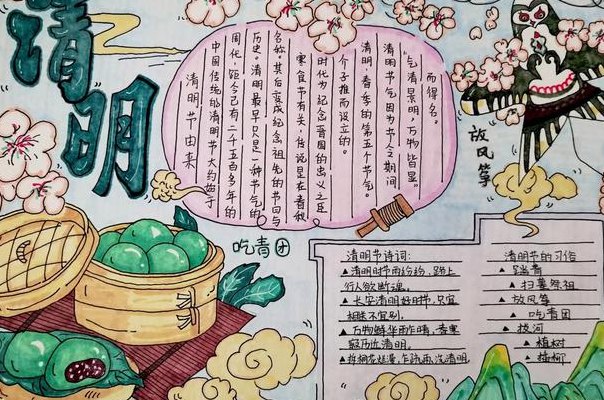 清明
清明节由来
中国传统的清明节大约始于
周代，距今已有二千五百多年的
历史。清明最早只是一种节气的
名称，其后变成纪念祖先的节日与
寒食节有关，传说是在春秋
时代为纪念晋国的忠义之臣
介子推而设立的。
清明，春季的第五个节气。
清明节气因为节令之期间
“气清景明，万物皆显”
而得名。
放风筝
吃青团
清明节诗词：
▲清明时节雨纷纷，路上
行人欲断魂。
▲长安清明好时节，只宜
相送不宜别。
▲万物鲜华雨乍晴，春寒
寂历近清明。
▲拆桐花烂漫，乍疏雨、洗清明。
清明节的习俗
▲踏青
▲扫墓祭祖
▲放风筝
▲吃青团
▲拔河
▲植树
▲插柳